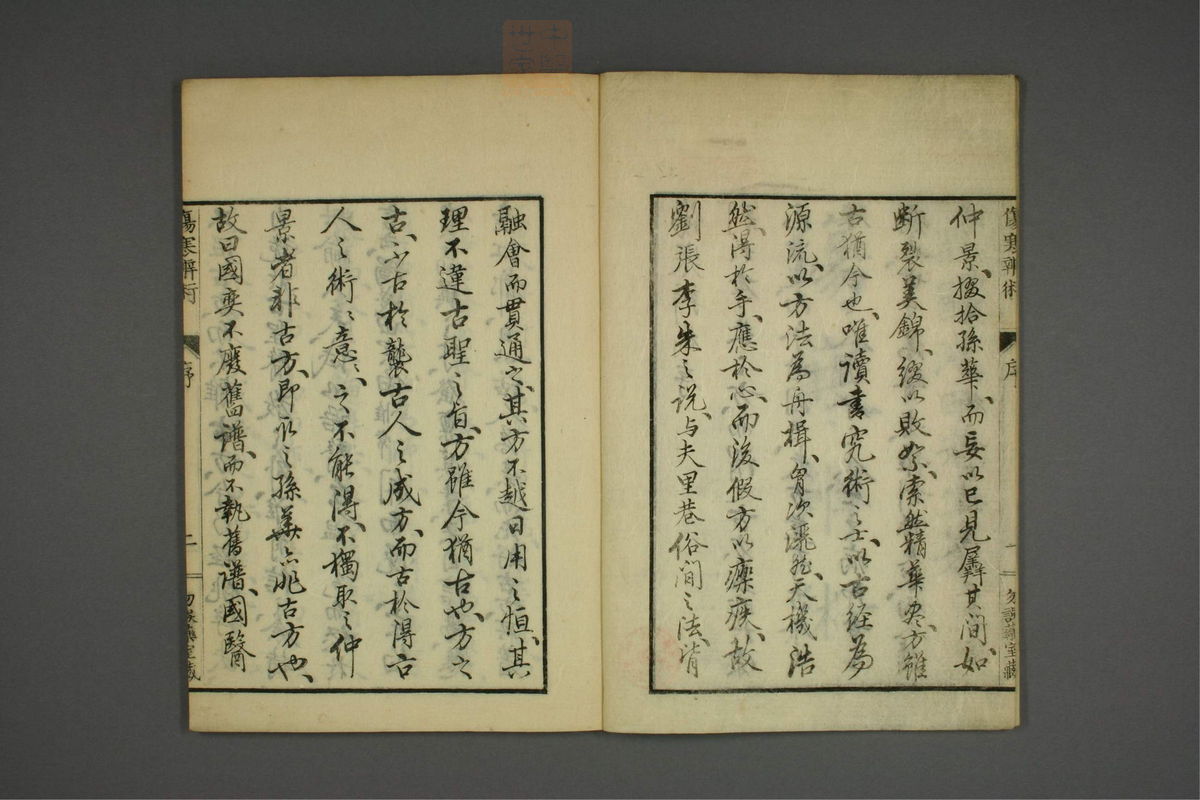 仲景、掇拾孫華、而妄以己見羼其間、如
断裂美錦、綴以敗絮、索然精華尽、方雖
古猶今也、唯讀書究術之士、以古経為
源流、以方法為舟楫、胷次灑然、天機浩
然、得於手、應於心、而後假方以療疾、故
劉張李朱之説、与夫里巷俗間之法、皆
傷寒辨術
序
一
融會而貫通之、其方不越日用之恒、其
理不違古聖之旨、方雖今猶古也、方之
古、不古於襲古人之成方、而古於得古
人之術、術、意、之不能得、不獨取之仲
景者非古方、即取之孫華亦非古方也、
故曰國奕不廢舊譜、而不執舊譜、國醫
傷寒辨術
序
二